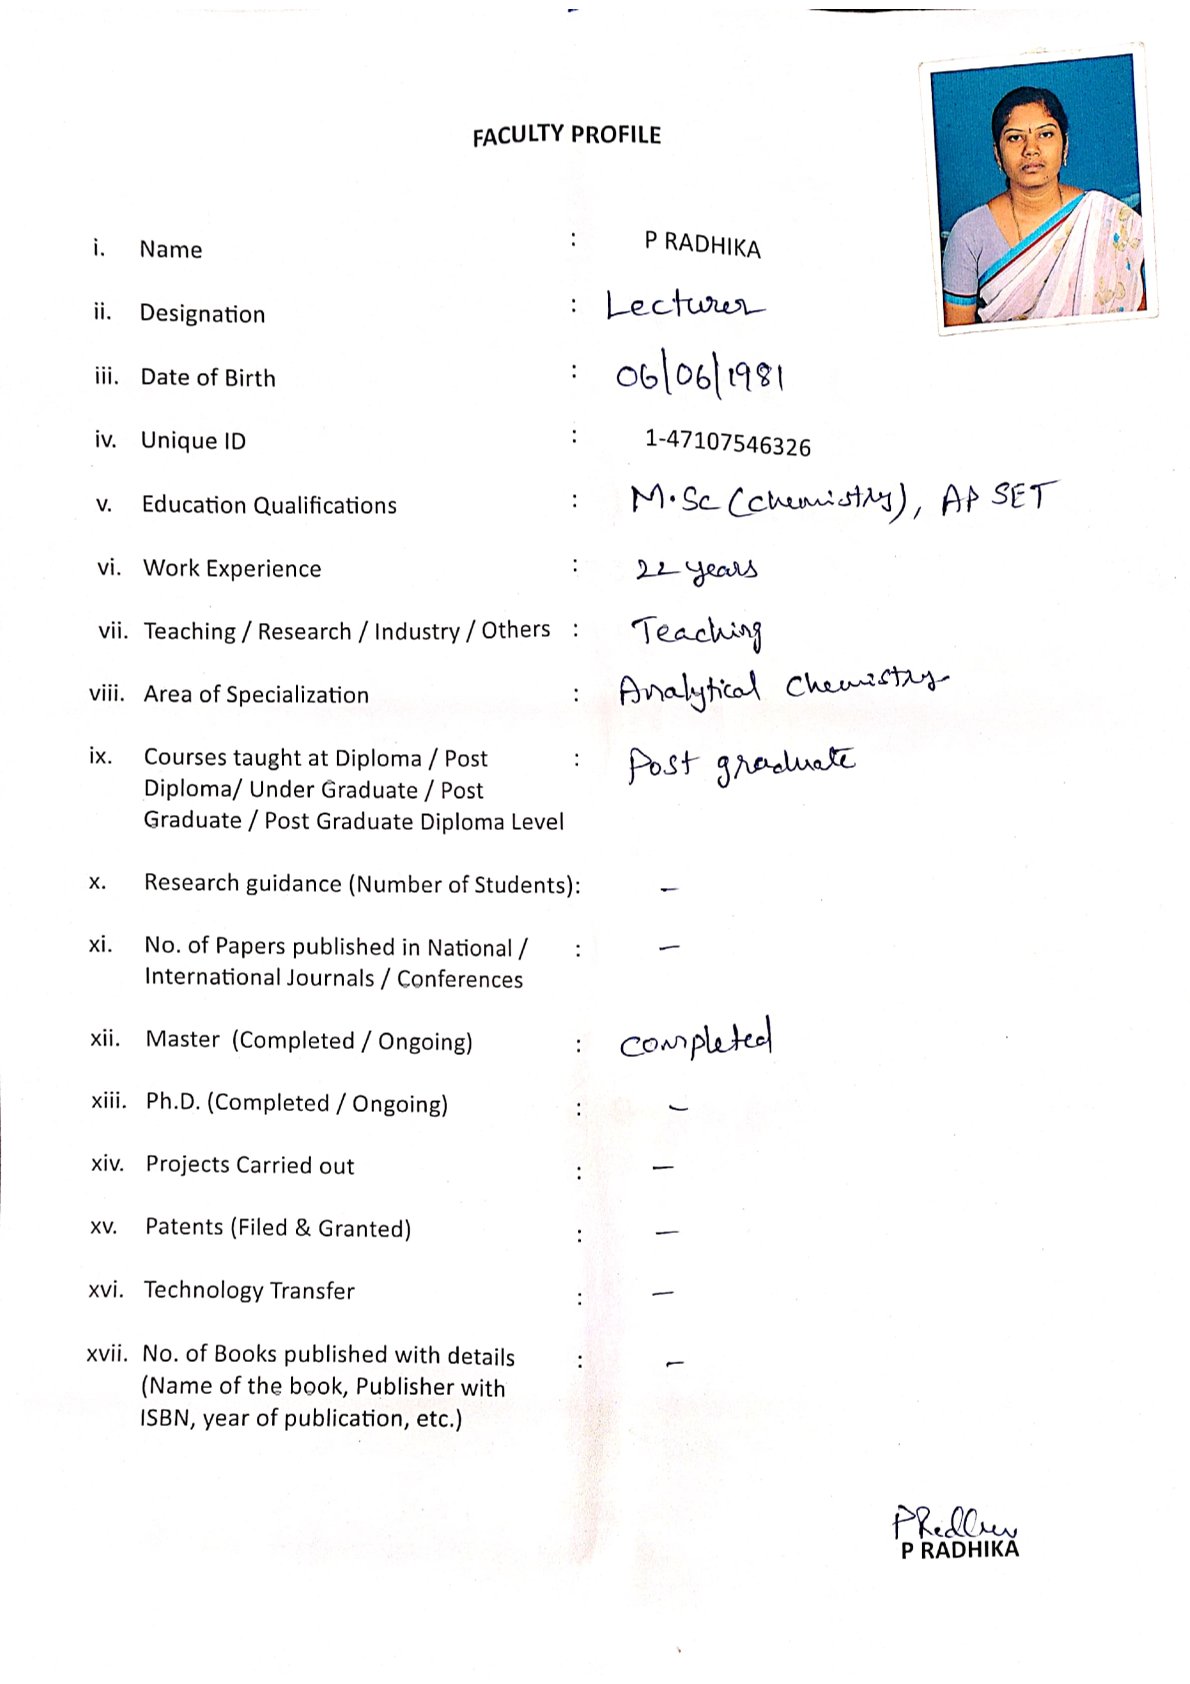 FACULTY PROFILE
i. Name : P RADHIKA
ii. Designation : Lecturer
iii. Date of Birth : 06/06/1981
iv. Unique ID : 1-47107546326
v. Education Qualifications : M.Sc (Chemistry), AP SET
vi. Work Experience : 22 years
vii. Teaching / Research / Industry / Others : Teaching
viii. Area of Specialization : Analytical Chemistry
ix. Courses taught at Diploma / Post : Post graduate
Diploma/ Under Graduate / Post
Graduate / Post Graduate Diploma Level
x. Research guidance (Number of Students): –
xi. No. of Papers published in National / : –
International Journals / Conferences
xii. Master (Completed / Ongoing) : completed
xiii. Ph.D. (Completed / Ongoing) : –
xiv. Projects Carried out : –
xv. Patents (Filed & Granted) : –
xvi. Technology Transfer : –
xvii. No. of Books published with details : –
(Name of the book, Publisher with
ISBN, year of publication, etc.)
P RADHIKA